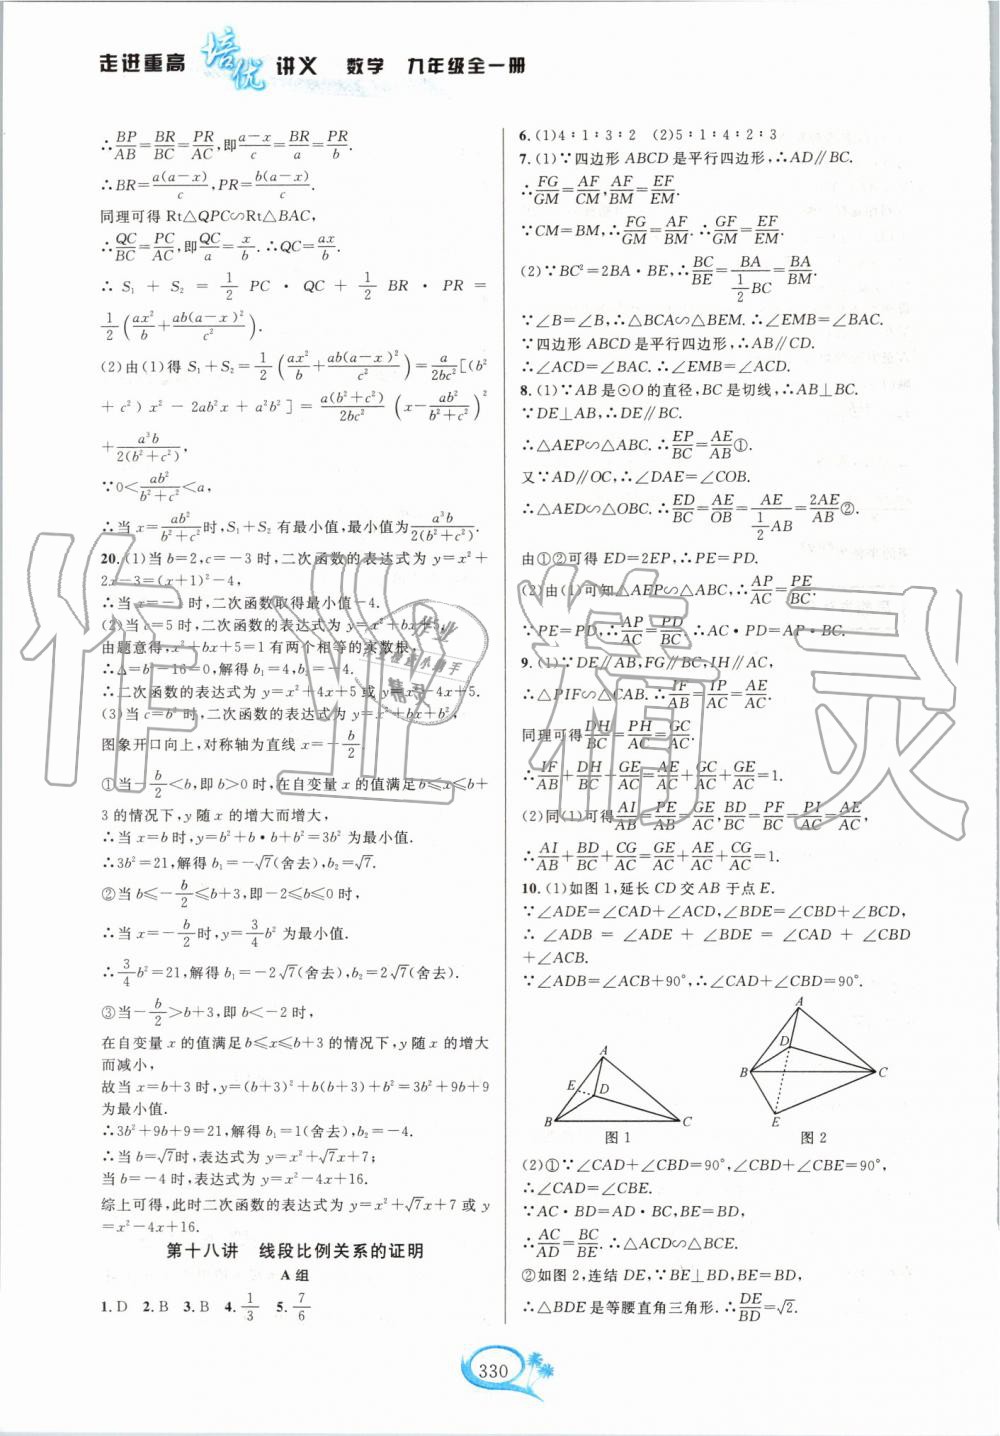 走进重高 培优 讲义 数学 九年级全一册
∴BP/AB=BR/BC=PR/AC,即(a-x)/c=BR/a=PR/b.
∴BR=a(a-x)/c,PR=b(a-x)/c.
同理可得 Rt△QPC∽Rt△BAC,
∴QC/BC=PC/AC,即QC/a=x/b.∴QC=ax/b.
∴S₁+S₂=1/2 PC·QC+1/2 BR·PR=
1/2(ax²/b+ab(a-x)²/c²).
(2)由(1)得 S₁+S₂=1/2(ax²/b+ab(a-x)²/c²)=a/2bc²[(b²
+c²)x²-2ab²x+a²b²]=a(b²+c²)/2bc²(x-ab²/(b²+c²))²
+a³b/2(b²+c²).
∵0<ab²/(b²+c²)<a,
∴当 x=ab²/(b²+c²)时,S₁+S₂ 有最小值,最小值为a³b/2(b²+c²).
20.(1)当 b=2,c=-3 时,二次函数的表达式为 y=x²+
2x-3=(x+1)²-4,
∴当 x=-1 时,二次函数取得最小值-4.
(2)当 c=5 时,二次函数的表达式为 y=x²+bx+5,
由题意得,x²+bx+5=1 有两个相等的实数根,
∴Δ=b²-16=0,解得 b₁=4,b₂=-4.
∴二次函数的表达式为 y=x²+4x+5 或 y=x²-4x+5.
(3)当 c=b² 时,二次函数的表达式为 y=x²+bx+b²,
图象开口向上,对称轴为直线 x=-b/2.
①当-b/2<b,即 b>0 时,在自变量 x 的值满足 b≤x≤b+
3 的情况下,y 随 x 的增大而增大,
∴当 x=b 时,y=b²+b·b+b²=3b² 为最小值.
∴3b²=21,解得 b₁=-√7(舍去),b₂=√7.
②当 b≤-b/2≤b+3,即-2≤b≤0 时,
∴当 x=-b/2时,y=3/4b² 为最小值.
∴3/4b²=21,解得 b₁=-2√7(舍去),b₂=2√7(舍去).
③当-b/2>b+3,即 b<-2 时,
在自变量 x 的值满足 b≤x≤b+3 的情况下,y 随 x 的增大
而减小,
故当 x=b+3 时,y=(b+3)²+b(b+3)+b²=3b²+9b+9
为最小值.
∴3b²+9b+9=21,解得 b₁=1(舍去),b₂=-4.
∴当 b=√7时,表达式为 y=x²+√7x+7;
当 b=-4 时,表达式为 y=x²-4x+16.
综上可得,此时二次函数的表达式为 y=x²+√7x+7 或
y=x²-4x+16.
第十八讲 线段比例关系的证明
A 组
1.D 2.B 3.B 4.1/3 5.7/6
6.(1)4∶1∶3∶2 (2)5∶1∶4∶2∶3
7.(1)∵四边形 ABCD 是平行四边形,∴AD∥BC.
∴FG/GM=AF/CM,AF/BM=EF/EM.
∵CM=BM,∴FG/GM=AF/BM.∴GF/GM=EF/EM.
(2)∵BC²=2BA·BE,∴BC/BE=BA/(1/2BC)=BA/BM.
∵∠B=∠B,∴△BCA∽△BEM.∴∠EMB=∠BAC.
∵四边形 ABCD 是平行四边形,∴AB∥CD.
∴∠ACD=∠BAC.∴∠EMB=∠ACD.
8.(1)∵AB 是⊙O 的直径,BC 是切线,∴AB⊥BC.
∵DE⊥AB,∴DE∥BC.
∴△AEP∽△ABC.∴EP/BC=AE/AB①.
又∵AD∥OC,∴∠DAE=∠COB.
∴△AED∽△OBC.∴ED/BC=AE/OB=AE/(1/2AB)=2AE/AB②.
由①②可得 ED=2EP,∴PE=PD.
(2)由(1)可知△AEP∽△ABC,∴AP/AC=PE/BC.
∵PE=PD,∴AP/AC=PD/BC.∴AC·PD=AP·BC.
9.(1)∵DE∥AB,FG∥BC,IH∥AC,
∴△PIF∽△CAB.∴IF/AB=IP/AC=AE/AC.
同理可得DH/BC=PH/AC=GC/AC.
∴IF/AB+DH/BC+GE/AC=AE/AC+GC/AC+GE/AC=1.
(2)同(1)可得AI/AB=PE/AB=GE/AC,BD/BC=PF/BC=PI/AC=AE/AC,
∴AI/AB+BD/BC+CG/AC=GE/AC+AE/AC+CG/AC=1.
10.(1)如图 1,延长 CD 交 AB 于点 E.
∵∠ADE=∠CAD+∠ACD,∠BDE=∠CBD+∠BCD,
∴∠ADB=∠ADE+∠BDE=∠CAD+∠CBD
+∠ACB.
∵∠ADB=∠ACB+90°,∴∠CAD+∠CBD=90°.
A
E
D
B
C
图 1
A
D
B
C
E
图 2
(2)①∵∠CAD+∠CBD=90°,∠CBD+∠CBE=90°,
∴∠CAD=∠CBE.
∵AC·BD=AD·BC,BD=BE,
∴AC/AD=BC/BE.∴△ACD∽△BCE.
②如图 2,连结 DE,∵BE⊥BD,BE=BD,
∴△BDE 是等腰直角三角形.∴DE/BD=√2.
330
作业精灵